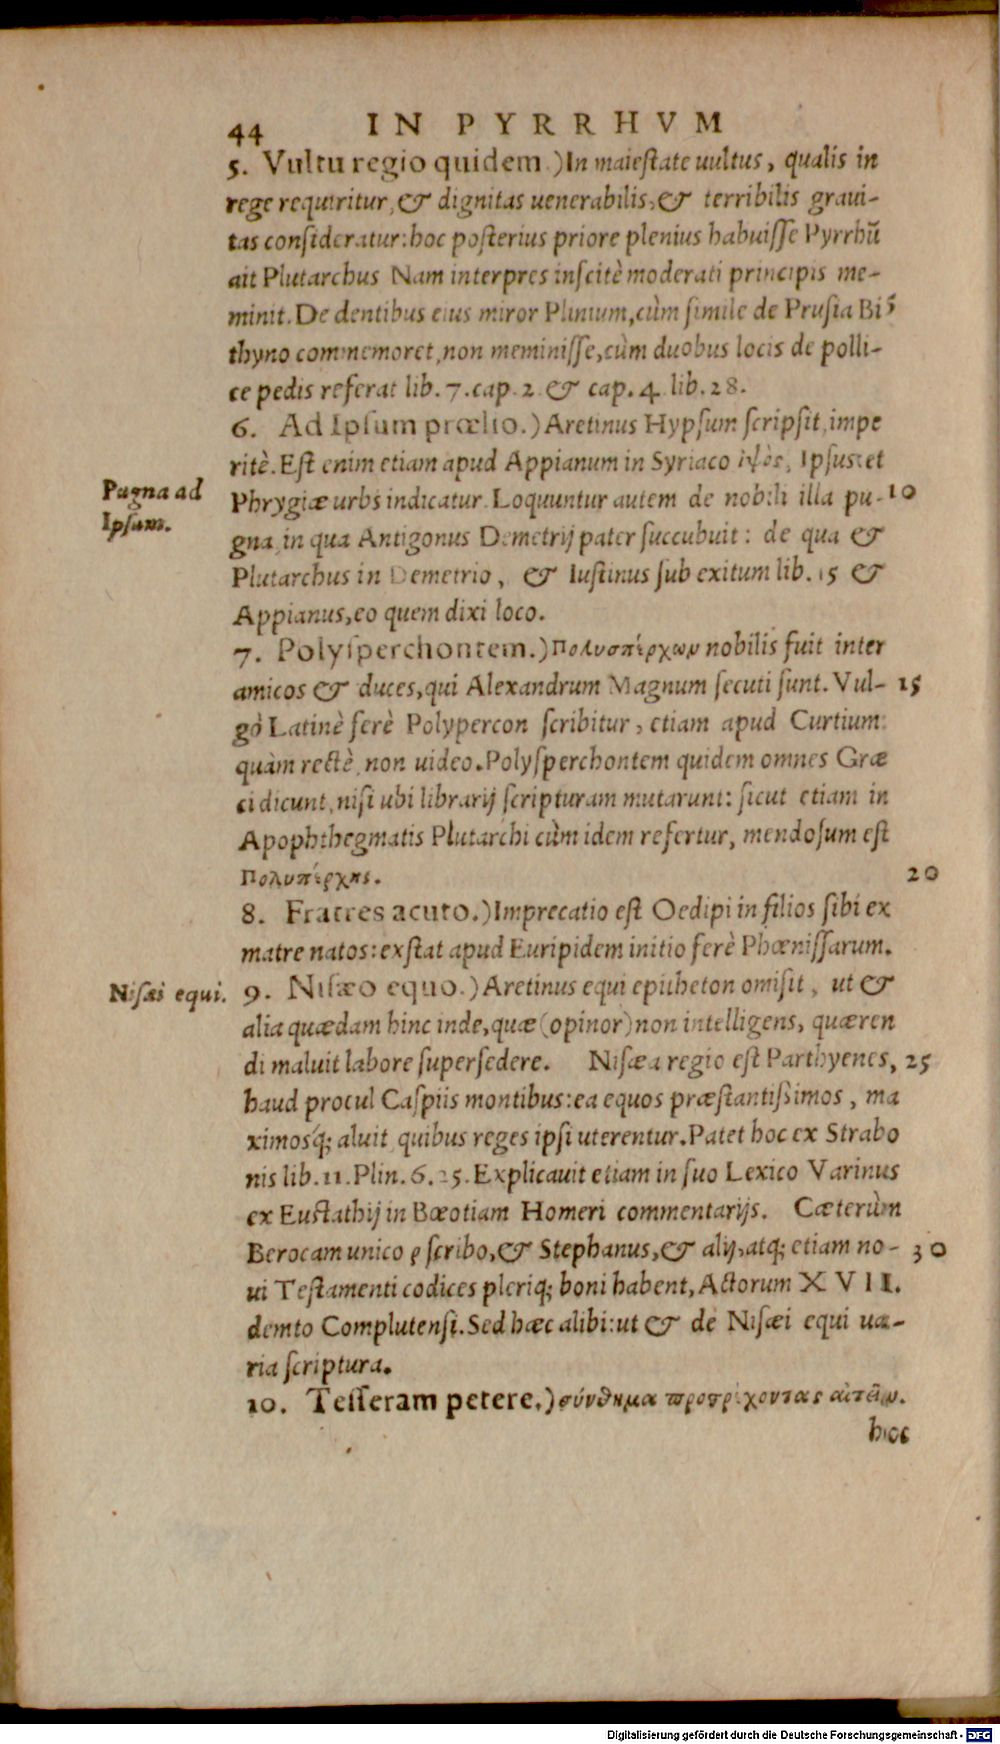 44 IN PYRRHVM
5. Vultu regio quidem.) In maieſtate uultus, qualis in
rege requiritur, & dignitas uenerabilis, & terribilis graui-
tas conſideratur: hoc poſterius priore plenius habuiſſe Pyrrhũ
ait Plutarchus Nam interpres inſcitè moderati principis me-
minit. De dentibus eius miror Plinium, cùm ſimile de Pruſia Bi 5
thyno commemoret, non meminiſſe, cùm duobus locis de polli-
ce pedis referat lib. 7. cap. 2. & cap. 4. lib. 28.
6. Ad Ipſum prælio.) Aretinus Hypſum ſcripſit, impe
ritè. Eſt enim etiam apud Appianum in Syriaco ἰψὸς, Ipſus: et
Pugna ad Ipſum.
Phrygiæ urbs indicatur. Loquuntur autem de nobili illa pu- 10
gna, in qua Antigonus Demetrij pater ſuccubuit: de qua &
Plutarchus in Demetrio, & Iuſtinus ſub exitum lib. 15 &
Appianus, eo quem dixi loco.
7. Polyſperchontem.) Πολυσπέρχων nobilis fuit inter
amicos & duces, qui Alexandrum Magnum ſecuti ſunt. Vul- 15
gò Latinè ferè Polypercon ſcribitur, etiam apud Curtium:
quàm rectè, non uideo. Polyſperchontem quidem omnes Græ
ci dicunt, niſi ubi librarij ſcripturam mutarunt: ſicut etiam in
Apophthegmatis Plutarchi cùm idem refertur, mendoſum eſt
Πολυπέρχης. 20
8. Fratres acuto.) Imprecatio eſt Oedipi in filios ſibi ex
matre natos: exſtat apud Euripidem initio ferè Phœniſſarum.
Niſæi equi.
9. Niſæo equo.) Aretinus equi epitheton omiſit, ut &
alia quædam hinc inde, quæ (opinor) non intelligens, quæren
di maluit labore ſuperſedere. Niſæa regio eſt Parthyenes, 25
haud procul Caſpiis montibus: ea equos præſtantiſsimos, ma
ximosq́; aluit, quibus reges ipſi uterentur. Patet hoc ex Strabo
nis lib. 11. Plin. 6. 25. Explicauit etiam in ſuo Lexico Varinus
ex Euſtathij in Bœotiam Homeri commentarijs. Cæterùm
Berocam unico ρ ſcribo, & Stephanus, & alij, atq; etiam no- 30
ui Teſtamenti codices pleriq; boni habent, Actorum XVII.
demto Complutenſi. Sed hæc alibi: ut & de Niſæi equi ua-
ria ſcriptura.
10. Teſſeram petere.) σύνθημα προστρέχοντας αἰτεῖν.
hoc
Digitalisierung gefördert durch die Deutsche Forschungsgemeinschaft - DFG